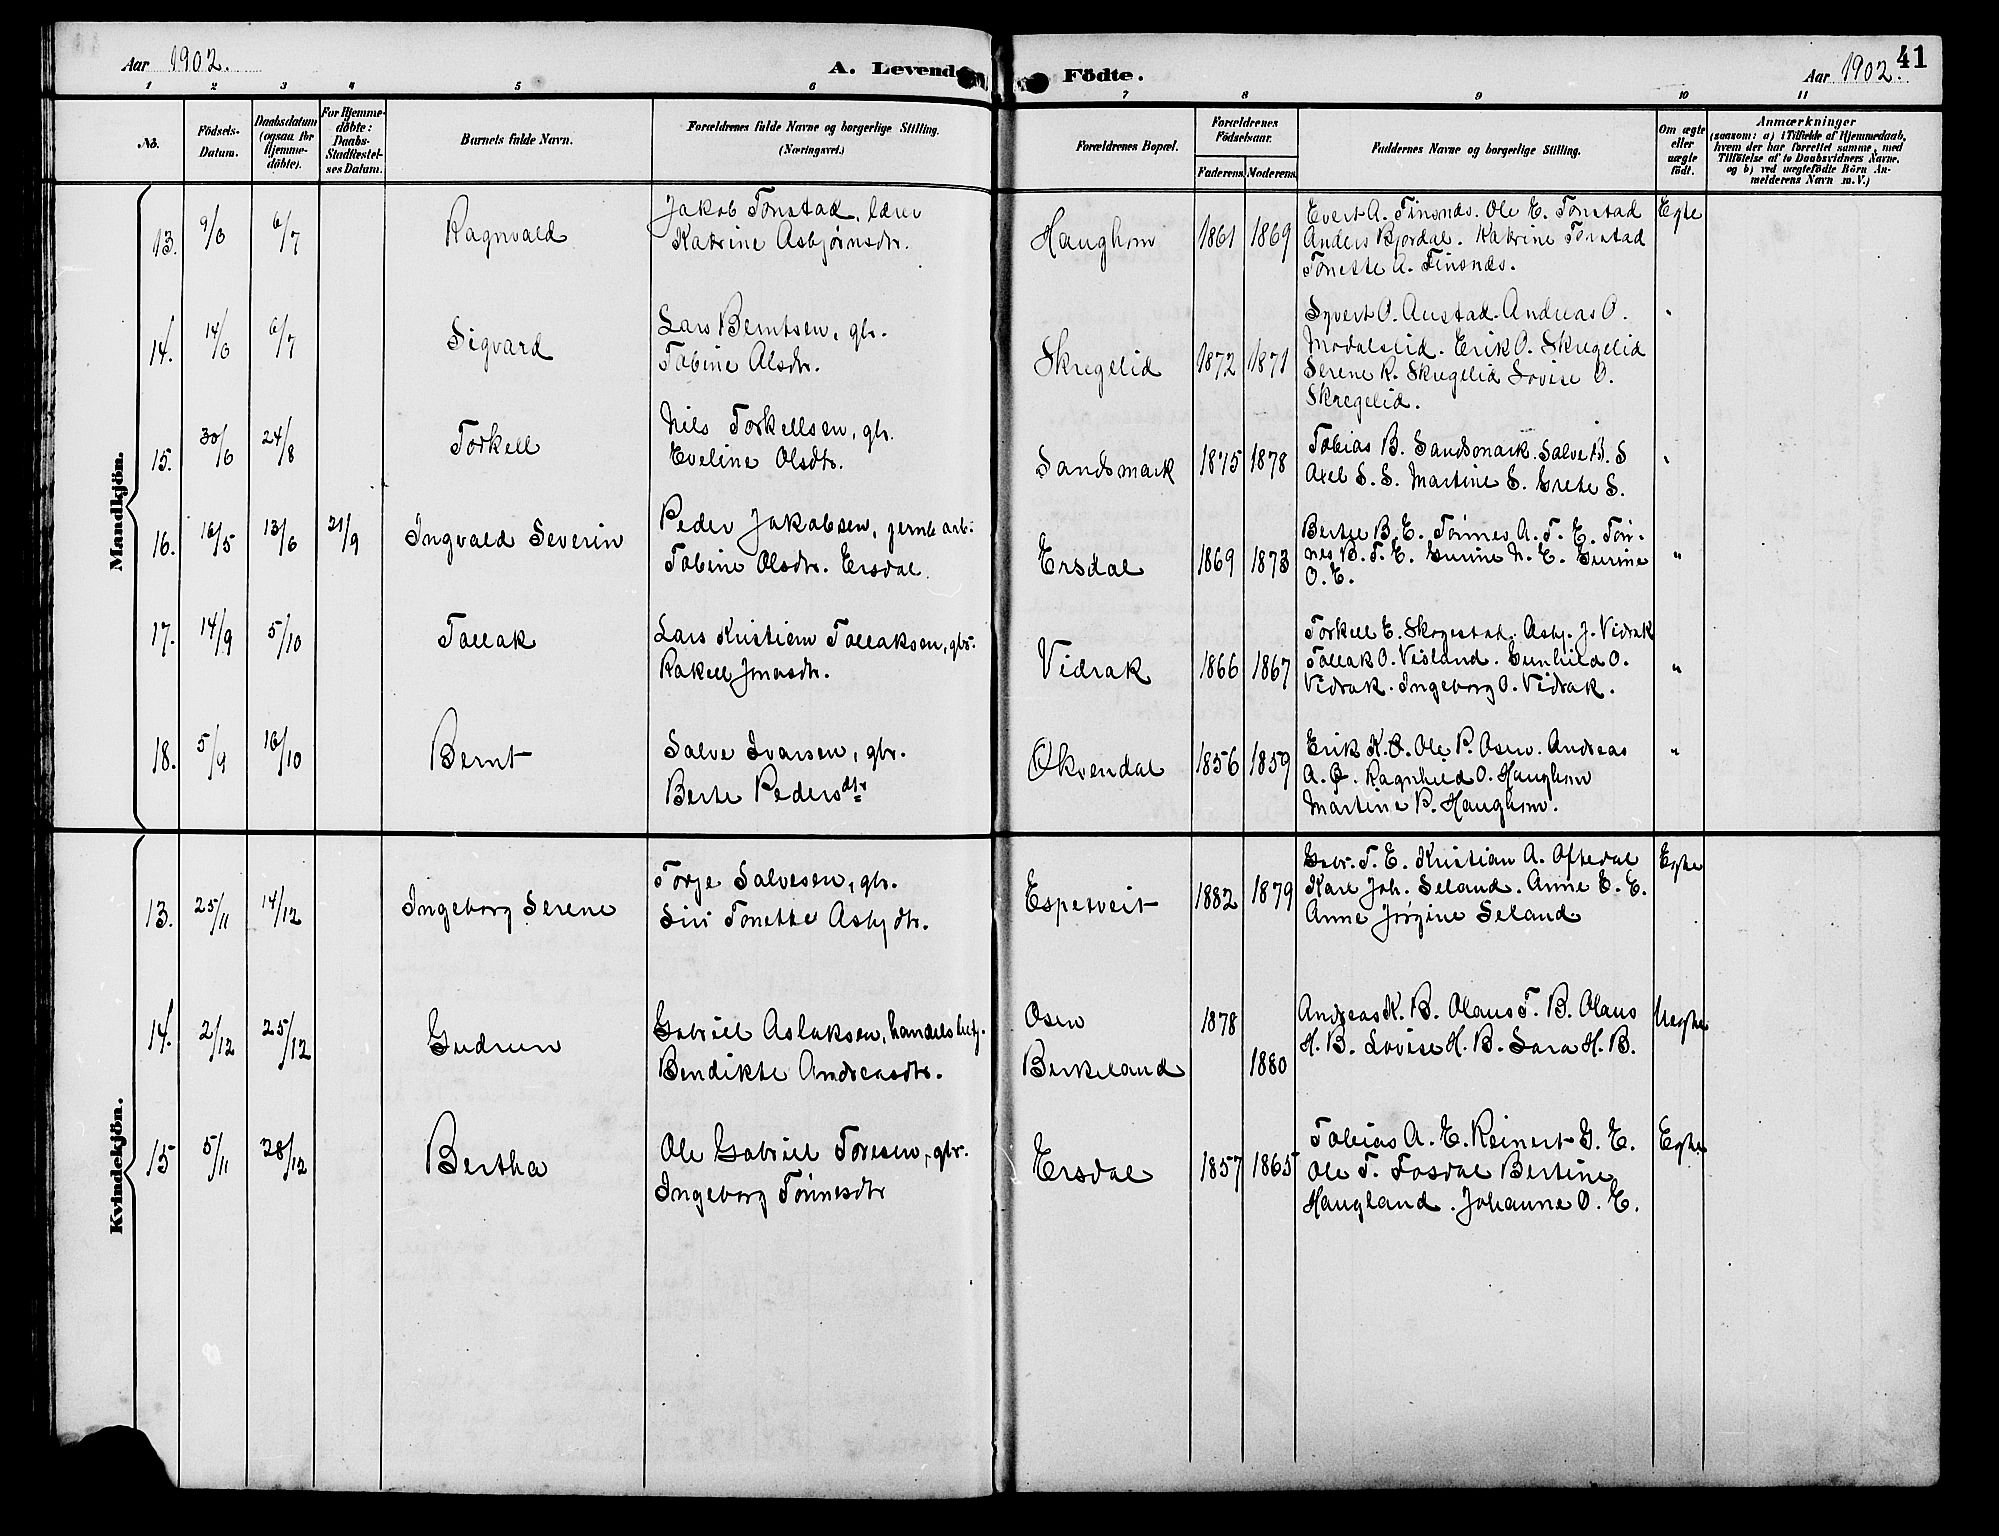 Aar 1902.
A. Levende Födte.
Aar 1902.
41
1 2 3 4 5 6 7 8 9 10 11
No.
Födsels-Datum.
Daabsdatum (ogsaa for Hjemme-döbte).
For Hjemme-döbte: Daabs-Stadfæstel-ses Datum.
Barnets fulde Navn.
Forældrenes fulde Navne og borgerlige Stilling.
(Næringsvei.)
Forældrenes Bopæl.
Forældrenes Födselsaar.
Faderens Moderens
Faddernes Navne og borgerlige Stilling.
Om ægte eller uægte födt.
Anmærkninger
(saasom: a) i Tilfælde af Hjemmedaab,
hvem der har forrettet samme, med
Tilföielse af to Daabsvidners Navne.
og b) ved uægtefödte Börn An-
melderens Navn m.V.)
Mandkjön.
13. 9/6 6/7 Ragnvald
Jakob Tonstad, lærer
Katrine Asbjørnsdtr.
Haughom 1861 1869
Evert A. Finsnes. Ole E. Tonstad
Anders Bjordal. Katrine Tonstad
Tonette A. Finsnes.
Egte
14. 14/6 6/7 Sigvard
Lars Berntsen, gbr.
Tobine Alsdtr.
Skregelid 1872 1871
Syvert O. Austad. Andreas O.
Modalslid. Erik O. Skregelid
Serene R. Skregelid Lovise O.
Skregelid.
"
15. 30/6 24/8 Torkell
Nils Torkellsen, gbr.
Eveline Olsdtr.
Sandsmark 1875 1878
Tobias B. Sandsmark. Salve B. S
Axel S. S. Martine S. Grete S.
"
16. 16/5 13/6 21/9 Ingvald Severin
Peder Jakobsen, jernb. arb.
Tobine Olsdtr. Ersdal.
Ersdal 1869 1873
Bertel B. E. Tønnes A. T. E. Tøn-
nes B. T. E. Gurine N. E. Gurine
O. E.
"
17. 14/9 5/10 Tallak
Lars Kristian Tallaksen, gbr.
Rakell Jonasdtr.
Vidrak 1866 1867
Torkell E. Skregestad. Asbj. J. Vidrak
Tallak O. Visland. Gunhild O.
Vidrak. Ingeborg O. Vidrak.
"
18. 5/9 16/10 Bernt
Salve Ivarsen, gbr.
Berte Pedersdtr
Økvendal 1856 1859
Erik K. Ø. Ole P. Osen. Andreas
A. Ø. Ragnhild O. Haughom
Martine P. Haughom.
"
Kvindekjön.
13. 25/11 14/12 Ingeborg Serene
Torje Salvesen, gbr.
Siri Tonette Asbjdtr.
Espetveit 1882 1879
Gabr. T. E. Kristian A. Oftedal
Karl Joh. Seland. Anne E. E.
Anne Jørgine Seland
Egte
14. 2/12 25/12 Gudrun
Gabriel Aslaksen, handelsbetj.
Bendikte Andreasdtr.
Osen 1878
Berkeland 1880
Andreas K. B. Olaus T. B. Olaus
H. B. Lovise H. B. Sara H. B.
Uegte
15 5/11 28/12 Bertha
Ole Gabriel Toresen, gbr.
Ingeborg Tønnesdtr
Ersdal 1857 1865
Tobias A. E. Reinert G. E.
Ole T. Fosdal Bertine
Haugland. Johanne O. E.
Egte